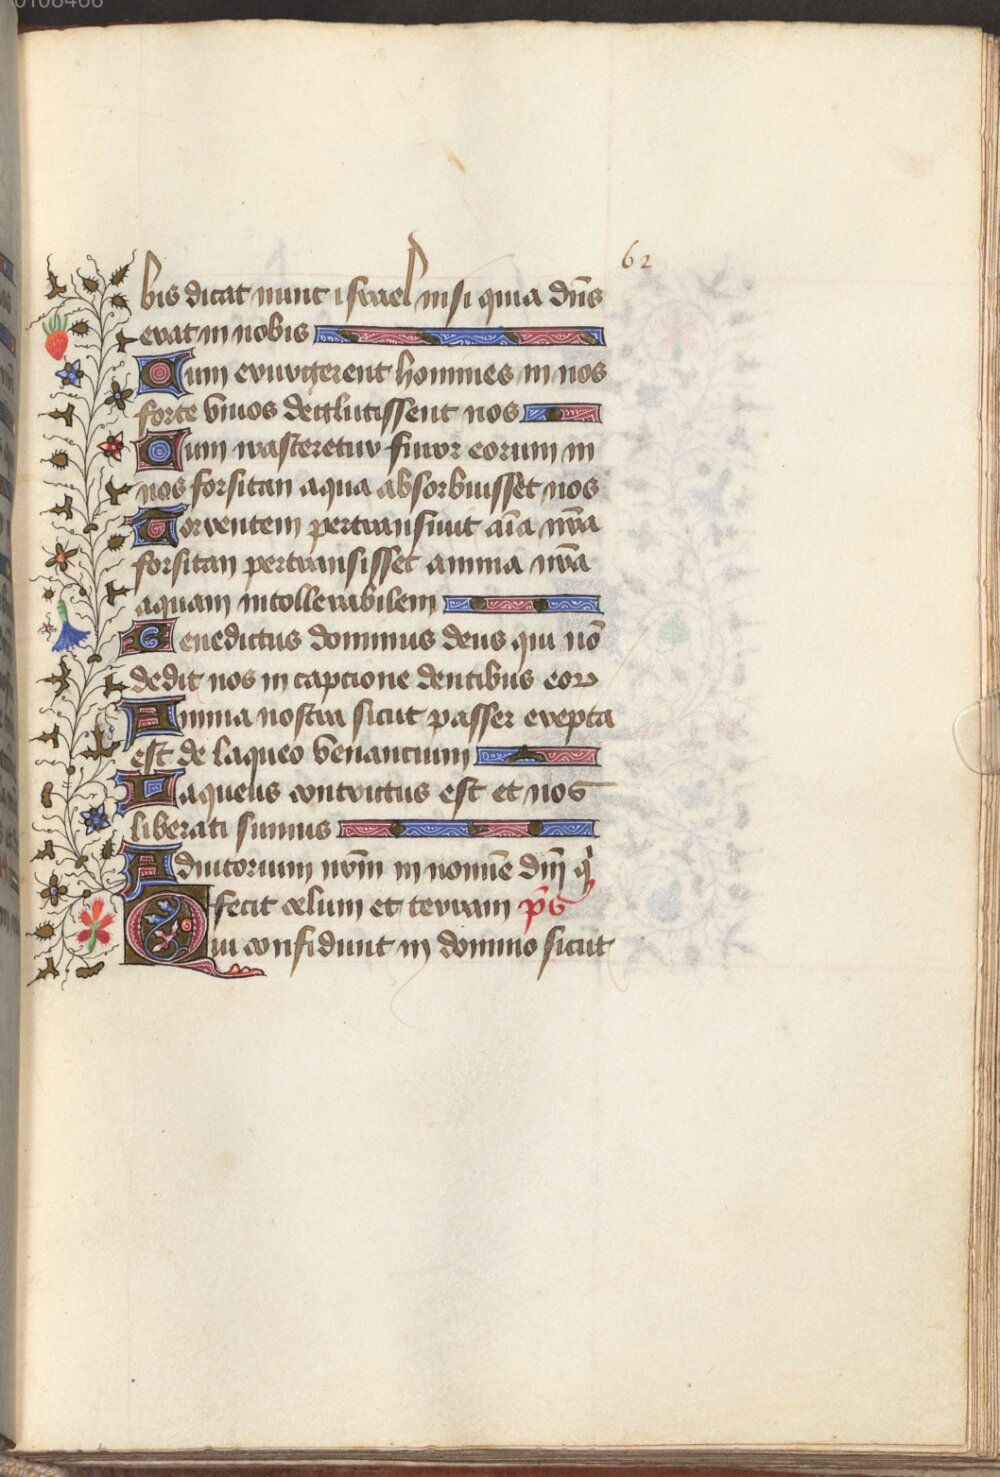 0108466
62
bis dicat nunc israel nisi quia dn̄s
erat in nobis
Cum exurgerent homines in nos
forte viuos deglutissent nos
Cum irasceretur furor eorum in
nos forsitan aqua absorbuisset nos
Torrentem pertransiuit aīa nr̄a
forsitan pertransisset anima nr̄a
aquam intollerabilem
Benedictus dominus deus qui nō
dedit nos in captione dentibus eoꝝ
Anima nostra sicut passer erepta
est de laqueo venantium
Laqueus contritus est et nos
liberati sumus
Adiutorium nr̄m in nomīe dn̄i q̇
fecit celum et terram p̄s
Qui confidunt in domino sicut